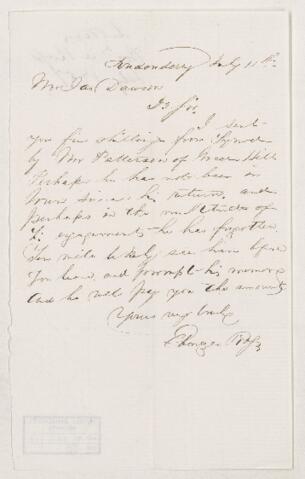 Londonderry July 11th
Mr Jas Dawson
Dr Sir
I sent
you five shillings from Synod
by Mr Patterson of Green Hill
Perhaps he has not been in
Town since his return, and
perhaps in the multitude of
his engagements he has forgotten
You will likely see him before
You leave and prompt his memory
and he will pay you the amount
Yours very truly
Ebenezer